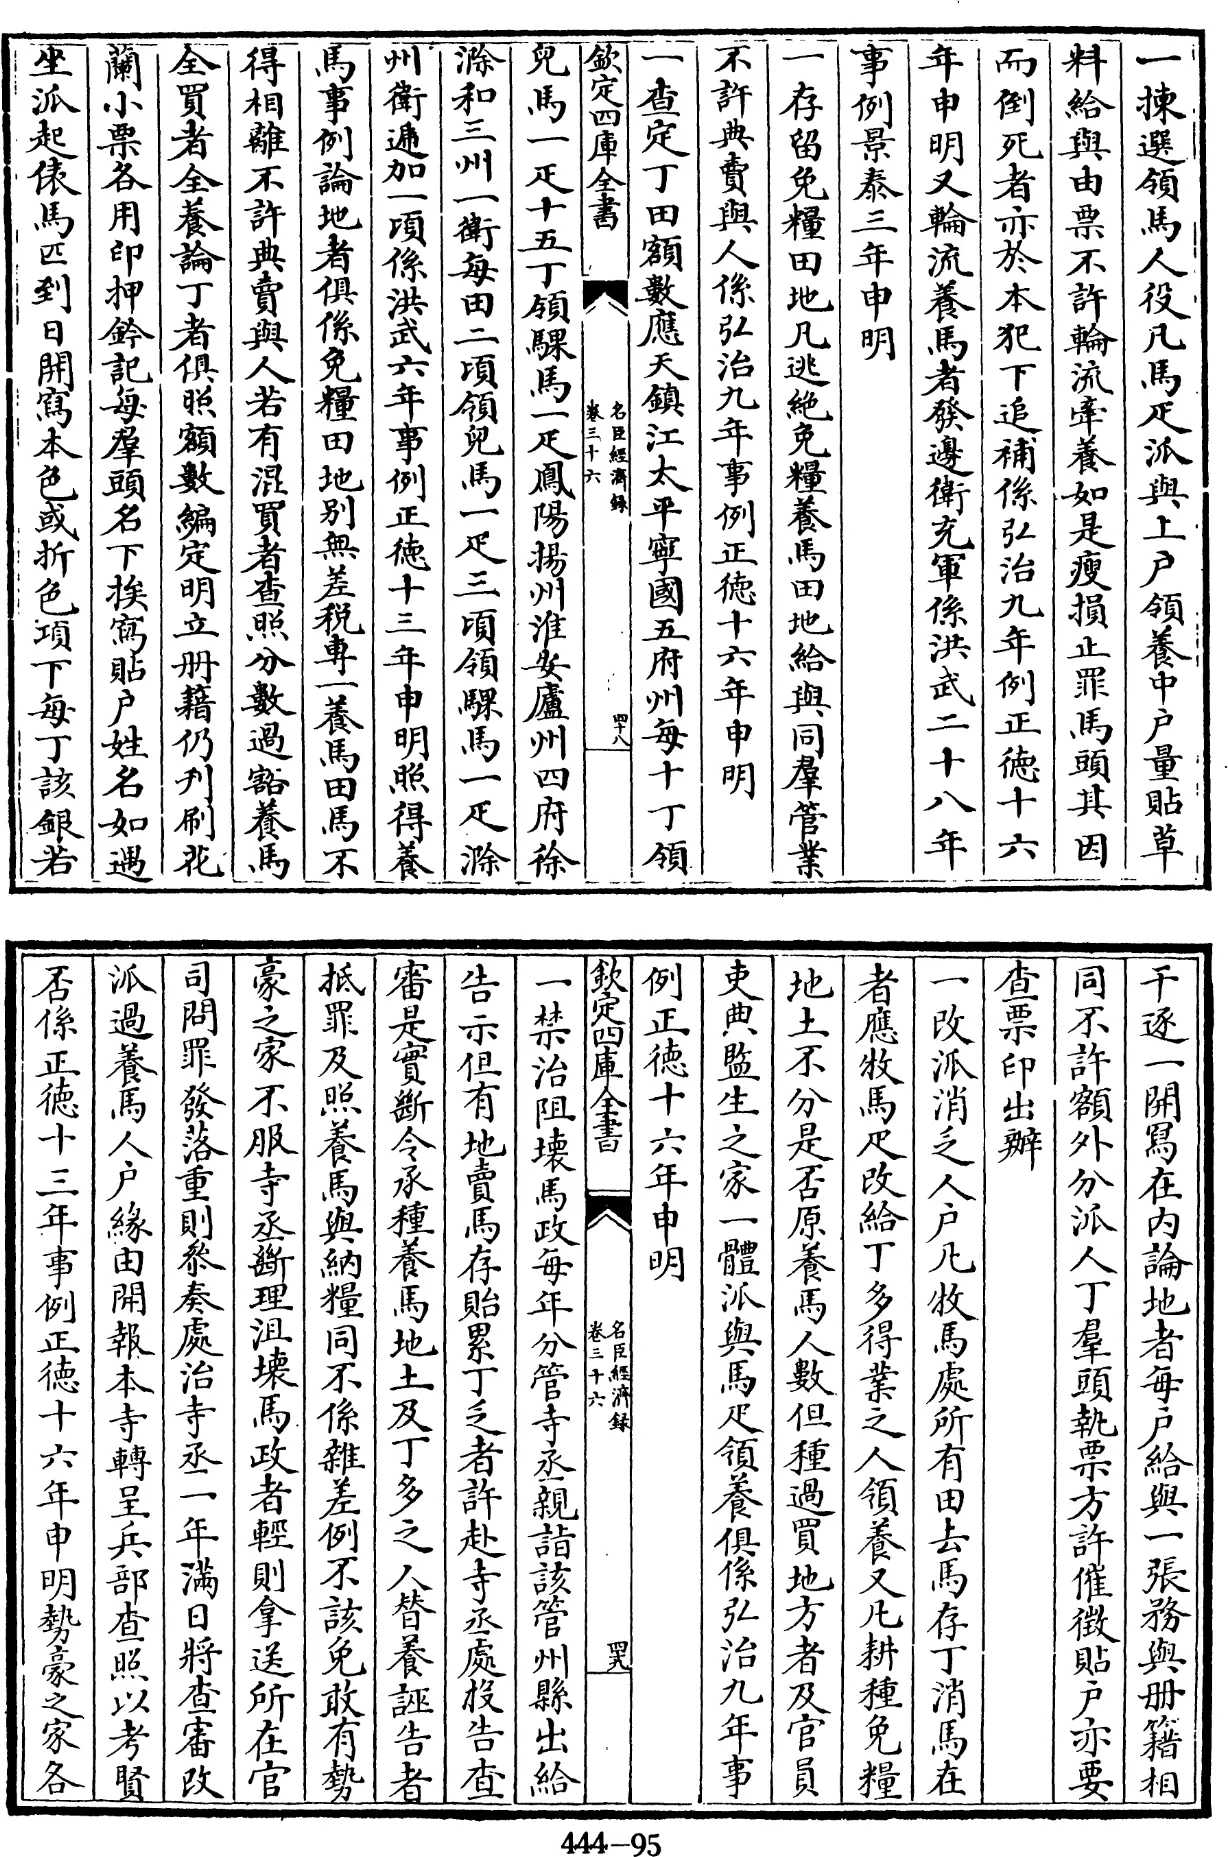 一揀選領馬人役凡馬疋派與上户領養中户量貼草
料給與由票不許輪流牽養如是瘦損止罪馬頭其因
而倒死者亦於本犯下追補係弘治九年例正德十六
年申明又輪流養馬者發邊衛充軍係洪武二十八年
事例景泰三年申明
一存留免糧田地凡逃絶免糧養馬田地給與同羣管業
不許典賣與人係弘治九年事例正德十六年申明
一查定丁田額數應天鎮江太平寧國五府州每十丁領
欽定四庫全書
名臣經濟録
卷三十六
四十八
兒馬一疋十五丁領騍馬一疋鳳陽揚州淮安廬州四府徐
滁和三州一衛每田二頃領兒馬一疋三頃領騍馬一疋滁
州衛遞加一頃係洪武六年事例正德十三年申明照得養
馬事例論地者俱係免糧田地别無差税專一養馬田馬不
得相離不許典賣與人若有混買者查照分數過豁養馬
全買者全養論丁者俱照額數編定明立册籍仍刋刷花
蘭小票各用印押鈐記每羣頭名下挨寫貼户姓名如遇
坐派起俵馬匹到日開寫本色或折色項下每丁該銀若
干逐一開冩在内論地者每户給與一張務與册籍相
同不許額外分派人丁羣頭執票方許催徵貼户亦要
查票印出辦
一改派消乏人户凡牧馬處所有田去馬存丁消馬在
者應牧馬疋改給丁多得業之人領養又凡耕種免糧
地土不分是否原養馬人數但種過買地方者及官員
吏典監生之家一體派與馬疋領養俱係弘治九年事
例正德十六年申明
欽定四庫全書
名臣經濟録
卷三十六
四十九
一禁治阻壊馬政每年分管寺丞親詣該管州縣出給
告示但有地賣馬存貽累丁乏者許赴寺丞處投告查
審是實斷令承種養馬地土及丁多之人替養誣告者
抵罪及照養馬與納糧同不係雜差例不該免敢有勢
豪之家不服寺丞斷理沮壊馬政者輕則拿送所在官
司問罪發落重則叅奏處治寺丞一年滿日將查審改
派過養馬人户緣由開報本寺轉呈兵部查照以考賢
否係正德十三年事例正德十六年申明勢豪之家各
444-95